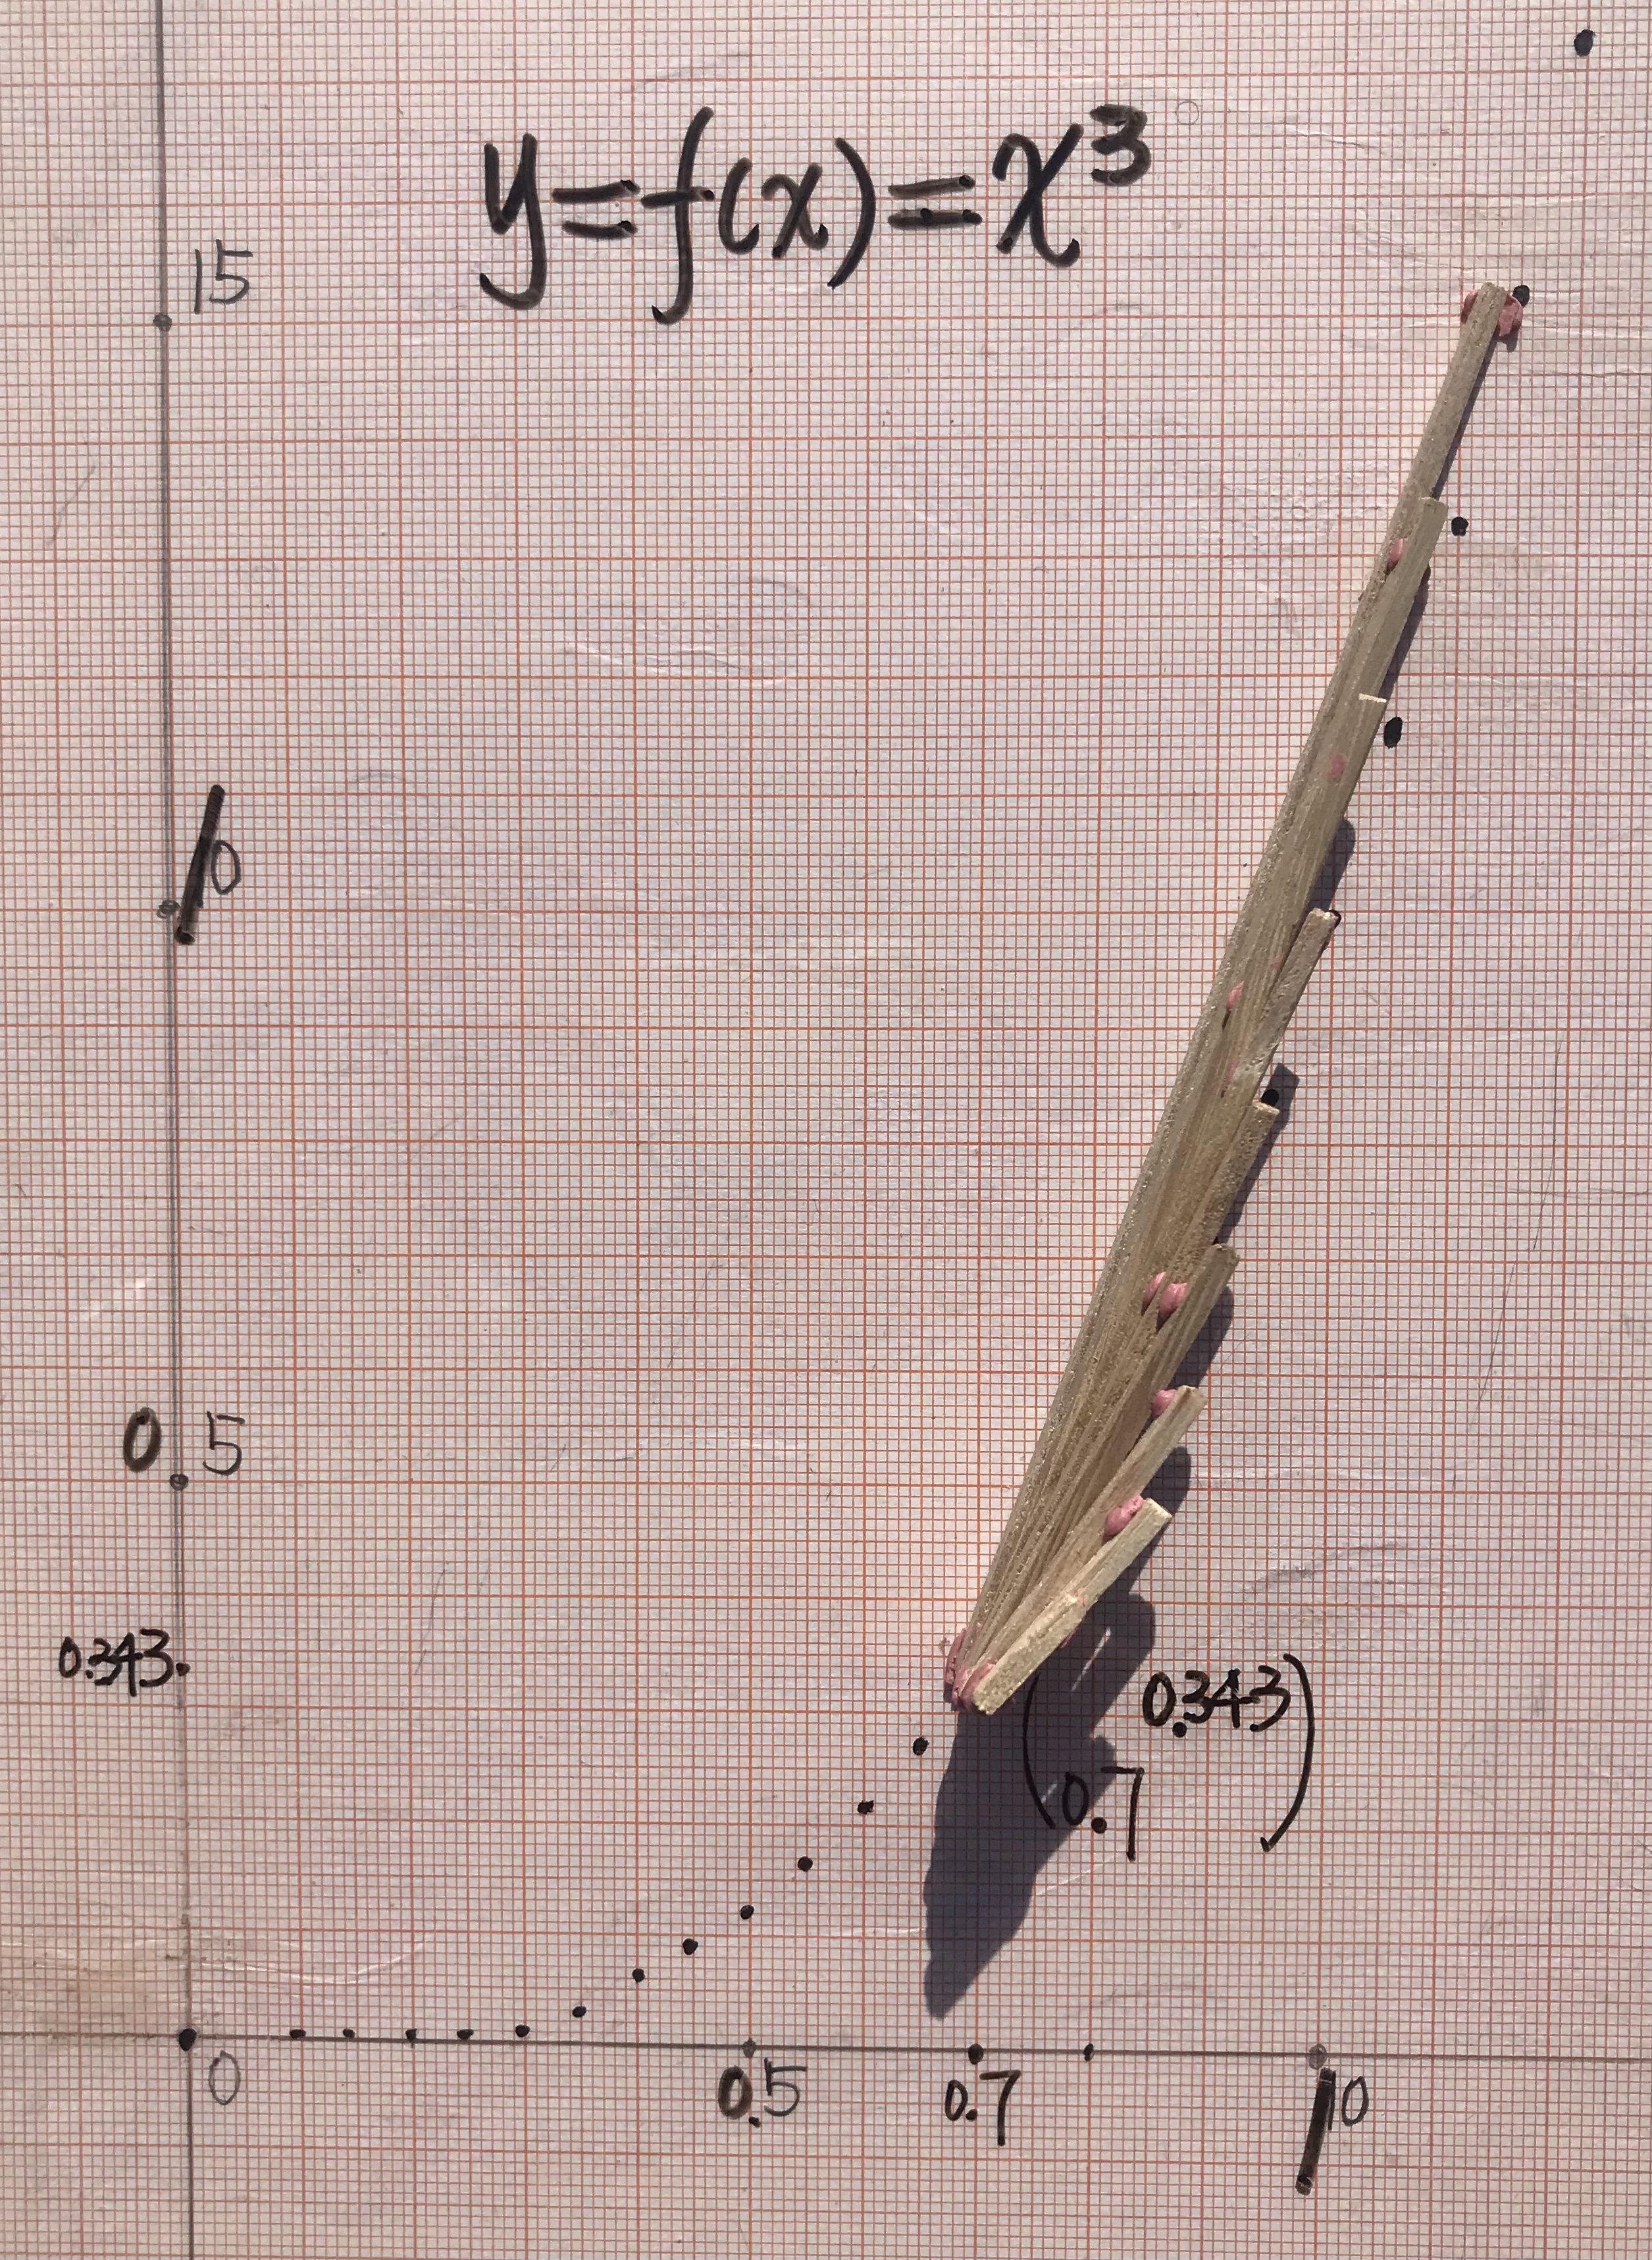 y=f(x)=x³
15
10
0.5
0.343
(0.343
0.7)
0
0.5
0.7
10